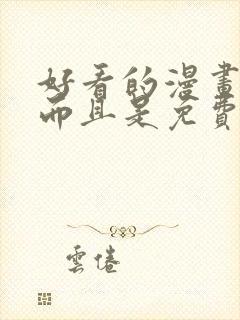 好看的漫畫
而且是免費
雲倦